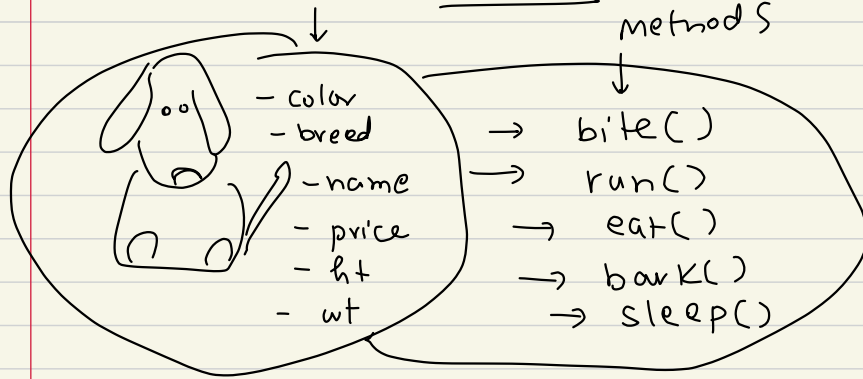 methods
- color
- breed
- name
- price
- ht
- wt
→ bite()
→ run()
→ eat()
→ bark()
→ sleep()